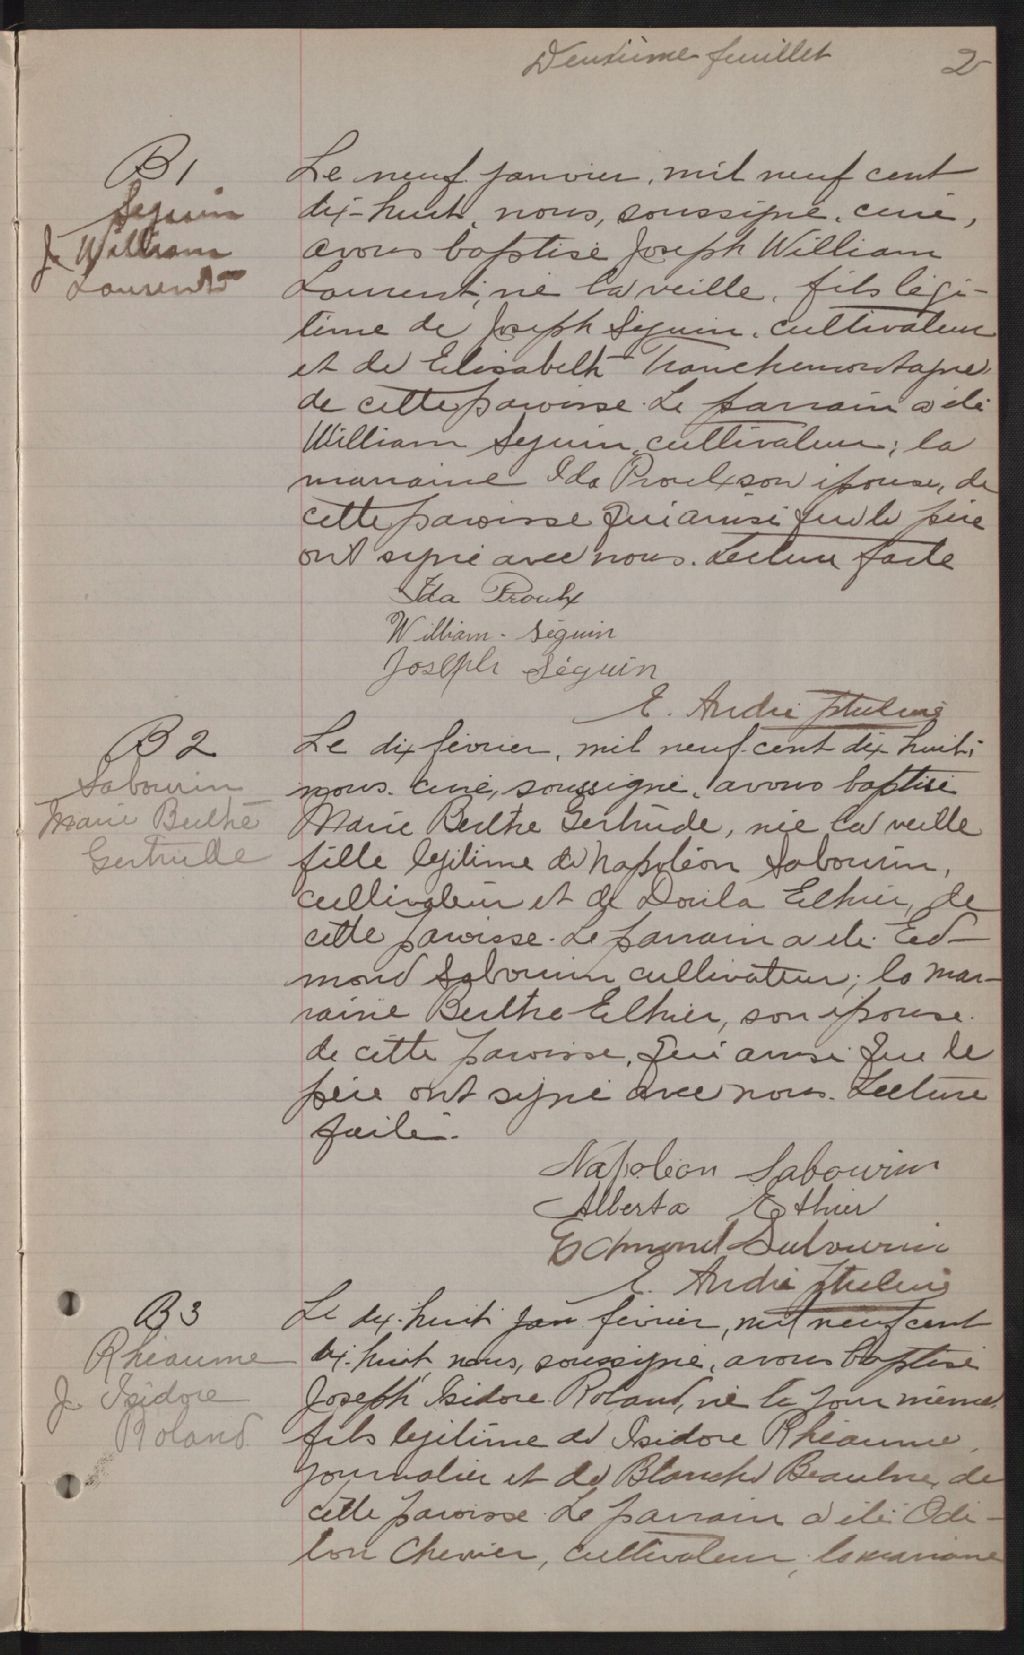 Deuxième feuillet 2
B 1
Seguin
J. William
Laurent
Le neuf janvier, mil neuf cent
dix-huit, nous, soussigné, curé,
avons baptisé Joseph William
Laurent, né la veille, fils légi-
time de Joseph Seguin, cultivateur
et de Elisabeth Tranchemontagne,
de cette paroisse. Le parrain a été
William Seguin, cultivateur; la
marraine Ida Proulx son épouse, de
cette paroisse qui ainsi que le père
ont signé avec nous. Lecture faite
Ida Proulx
William. Séguin
Joseph Séguin
E. André ptre curé
B 2
Sabourin
Marie Berthe
Gertrude
Le dix février, mil neuf cent dix huit,
nous curé, soussigné, avons baptisé
Marie Berthe Gertrude, née la veille
fille légitime de Napoléon Sabourin,
cultivateur et de Ethier, de
cette paroisse. Le parrain a été Ed-
mond Sabourin cultivateur; la mar-
raine Berthe Ethier, son épouse
de cette paroisse, qui ainsi que le
père ont signé avec nous. Lecture
faite.
Napoléon Sabourin
Alberta Ethier
Edmond Sabourin
E. André ptre curé
B 3
Rhéaume
J. Isidore
Roland
Le dix-huit jan février, mil neuf cent
dix-huit nous, soussigné, avons baptisé
Joseph Isidore Roland, né le jour même
fils légitime de Isidore Rhéaume,
journalier et de Blanche Beaulne, de
cette paroisse. Le parrain a été Odi-
lon Chevrier, cultivateur; la marraine